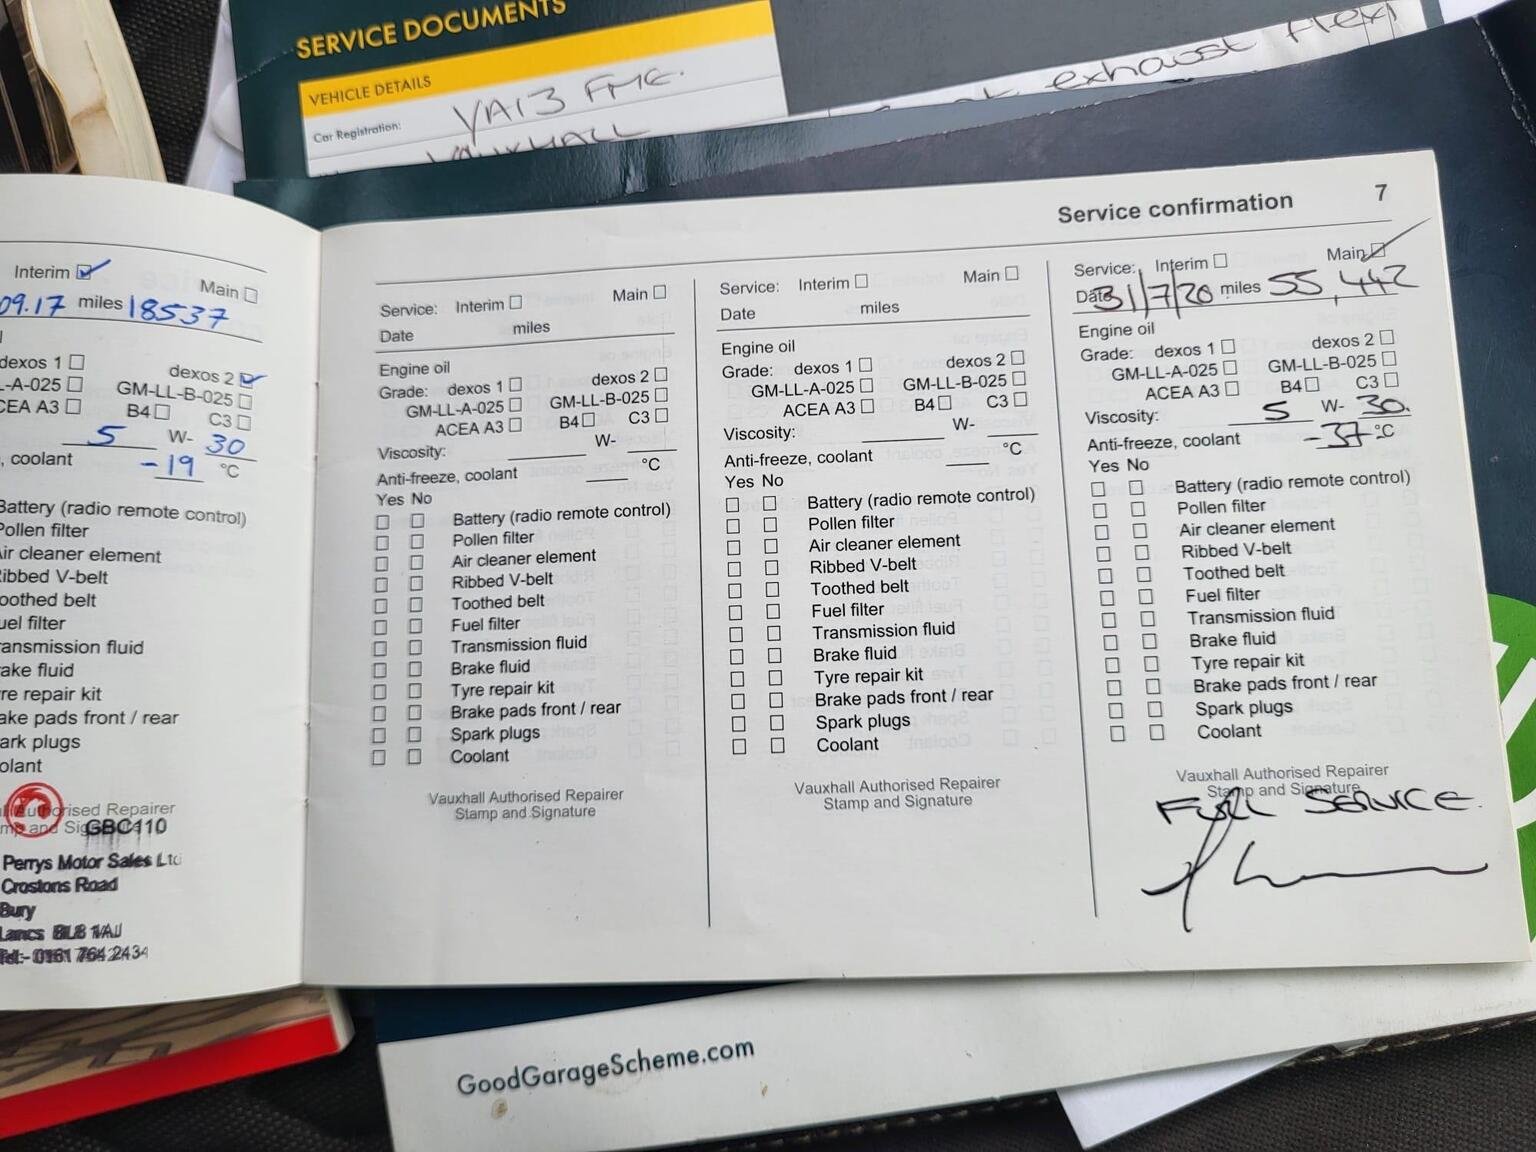 SERVICE DOCUMENTS
VEHICLE DETAILS
Car Registration: YA13 FME.
VAUXHALL
exhaust flexi
Service confirmation 7
Interim ☑ Main ☐
09.17 miles 18537
dexos 1 ☐ dexos 2 ☑
LL-A-025 ☐ GM-LL-B-025 ☐
ACEA A3 ☐ B4 ☐ C3 ☐
5 W- 30
, coolant -19 °C
Battery (radio remote control)
Pollen filter
Air cleaner element
Ribbed V-belt
Toothed belt
Fuel filter
Transmission fluid
Brake fluid
Tyre repair kit
Brake pads front / rear
Spark plugs
Coolant
Authorised Repairer
Stamp and Sig
GBC110
Perrys Motor Sales Ltd
Crostons Road
Bury
Lancs BL8 1AJ
Tel:- 0161 764 2434
Service: Interim ☐ Main ☐
Date miles
Engine oil
Grade: dexos 1 ☐ dexos 2 ☐
GM-LL-A-025 ☐ GM-LL-B-025 ☐
ACEA A3 ☐ B4 ☐ C3 ☐
Viscosity: W-
Anti-freeze, coolant °C
Yes No
☐ ☐ Battery (radio remote control)
☐ ☐ Pollen filter
☐ ☐ Air cleaner element
☐ ☐ Ribbed V-belt
☐ ☐ Toothed belt
☐ ☐ Fuel filter
☐ ☐ Transmission fluid
☐ ☐ Brake fluid
☐ ☐ Tyre repair kit
☐ ☐ Brake pads front / rear
☐ ☐ Spark plugs
☐ ☐ Coolant
Vauxhall Authorised Repairer
Stamp and Signature
Service: Interim ☐ Main ☐
Date miles
Engine oil
Grade: dexos 1 ☐ dexos 2 ☐
GM-LL-A-025 ☐ GM-LL-B-025 ☐
ACEA A3 ☐ B4 ☐ C3 ☐
Viscosity: W-
Anti-freeze, coolant °C
Yes No
☐ ☐ Battery (radio remote control)
☐ ☐ Pollen filter
☐ ☐ Air cleaner element
☐ ☐ Ribbed V-belt
☐ ☐ Toothed belt
☐ ☐ Fuel filter
☐ ☐ Transmission fluid
☐ ☐ Brake fluid
☐ ☐ Tyre repair kit
☐ ☐ Brake pads front / rear
☐ ☐ Spark plugs
☐ ☐ Coolant
Vauxhall Authorised Repairer
Stamp and Signature
Service: Interim ☐ Main ☑
Date 31/7/20 miles 55,442
Engine oil
Grade: dexos 1 ☐ dexos 2 ☐
GM-LL-A-025 ☐ GM-LL-B-025 ☐
ACEA A3 ☐ B4 ☐ C3 ☐
Viscosity: 5 W- 30.
Anti-freeze, coolant -37 °C
Yes No
☐ ☐ Battery (radio remote control)
☐ ☐ Pollen filter
☐ ☐ Air cleaner element
☐ ☐ Ribbed V-belt
☐ ☐ Toothed belt
☐ ☐ Fuel filter
☐ ☐ Transmission fluid
☐ ☐ Brake fluid
☐ ☐ Tyre repair kit
☐ ☐ Brake pads front / rear
☐ ☐ Spark plugs
☐ ☐ Coolant
Vauxhall Authorised Repairer
Stamp and Signature
FULL SERVICE.
GoodGarageScheme.com